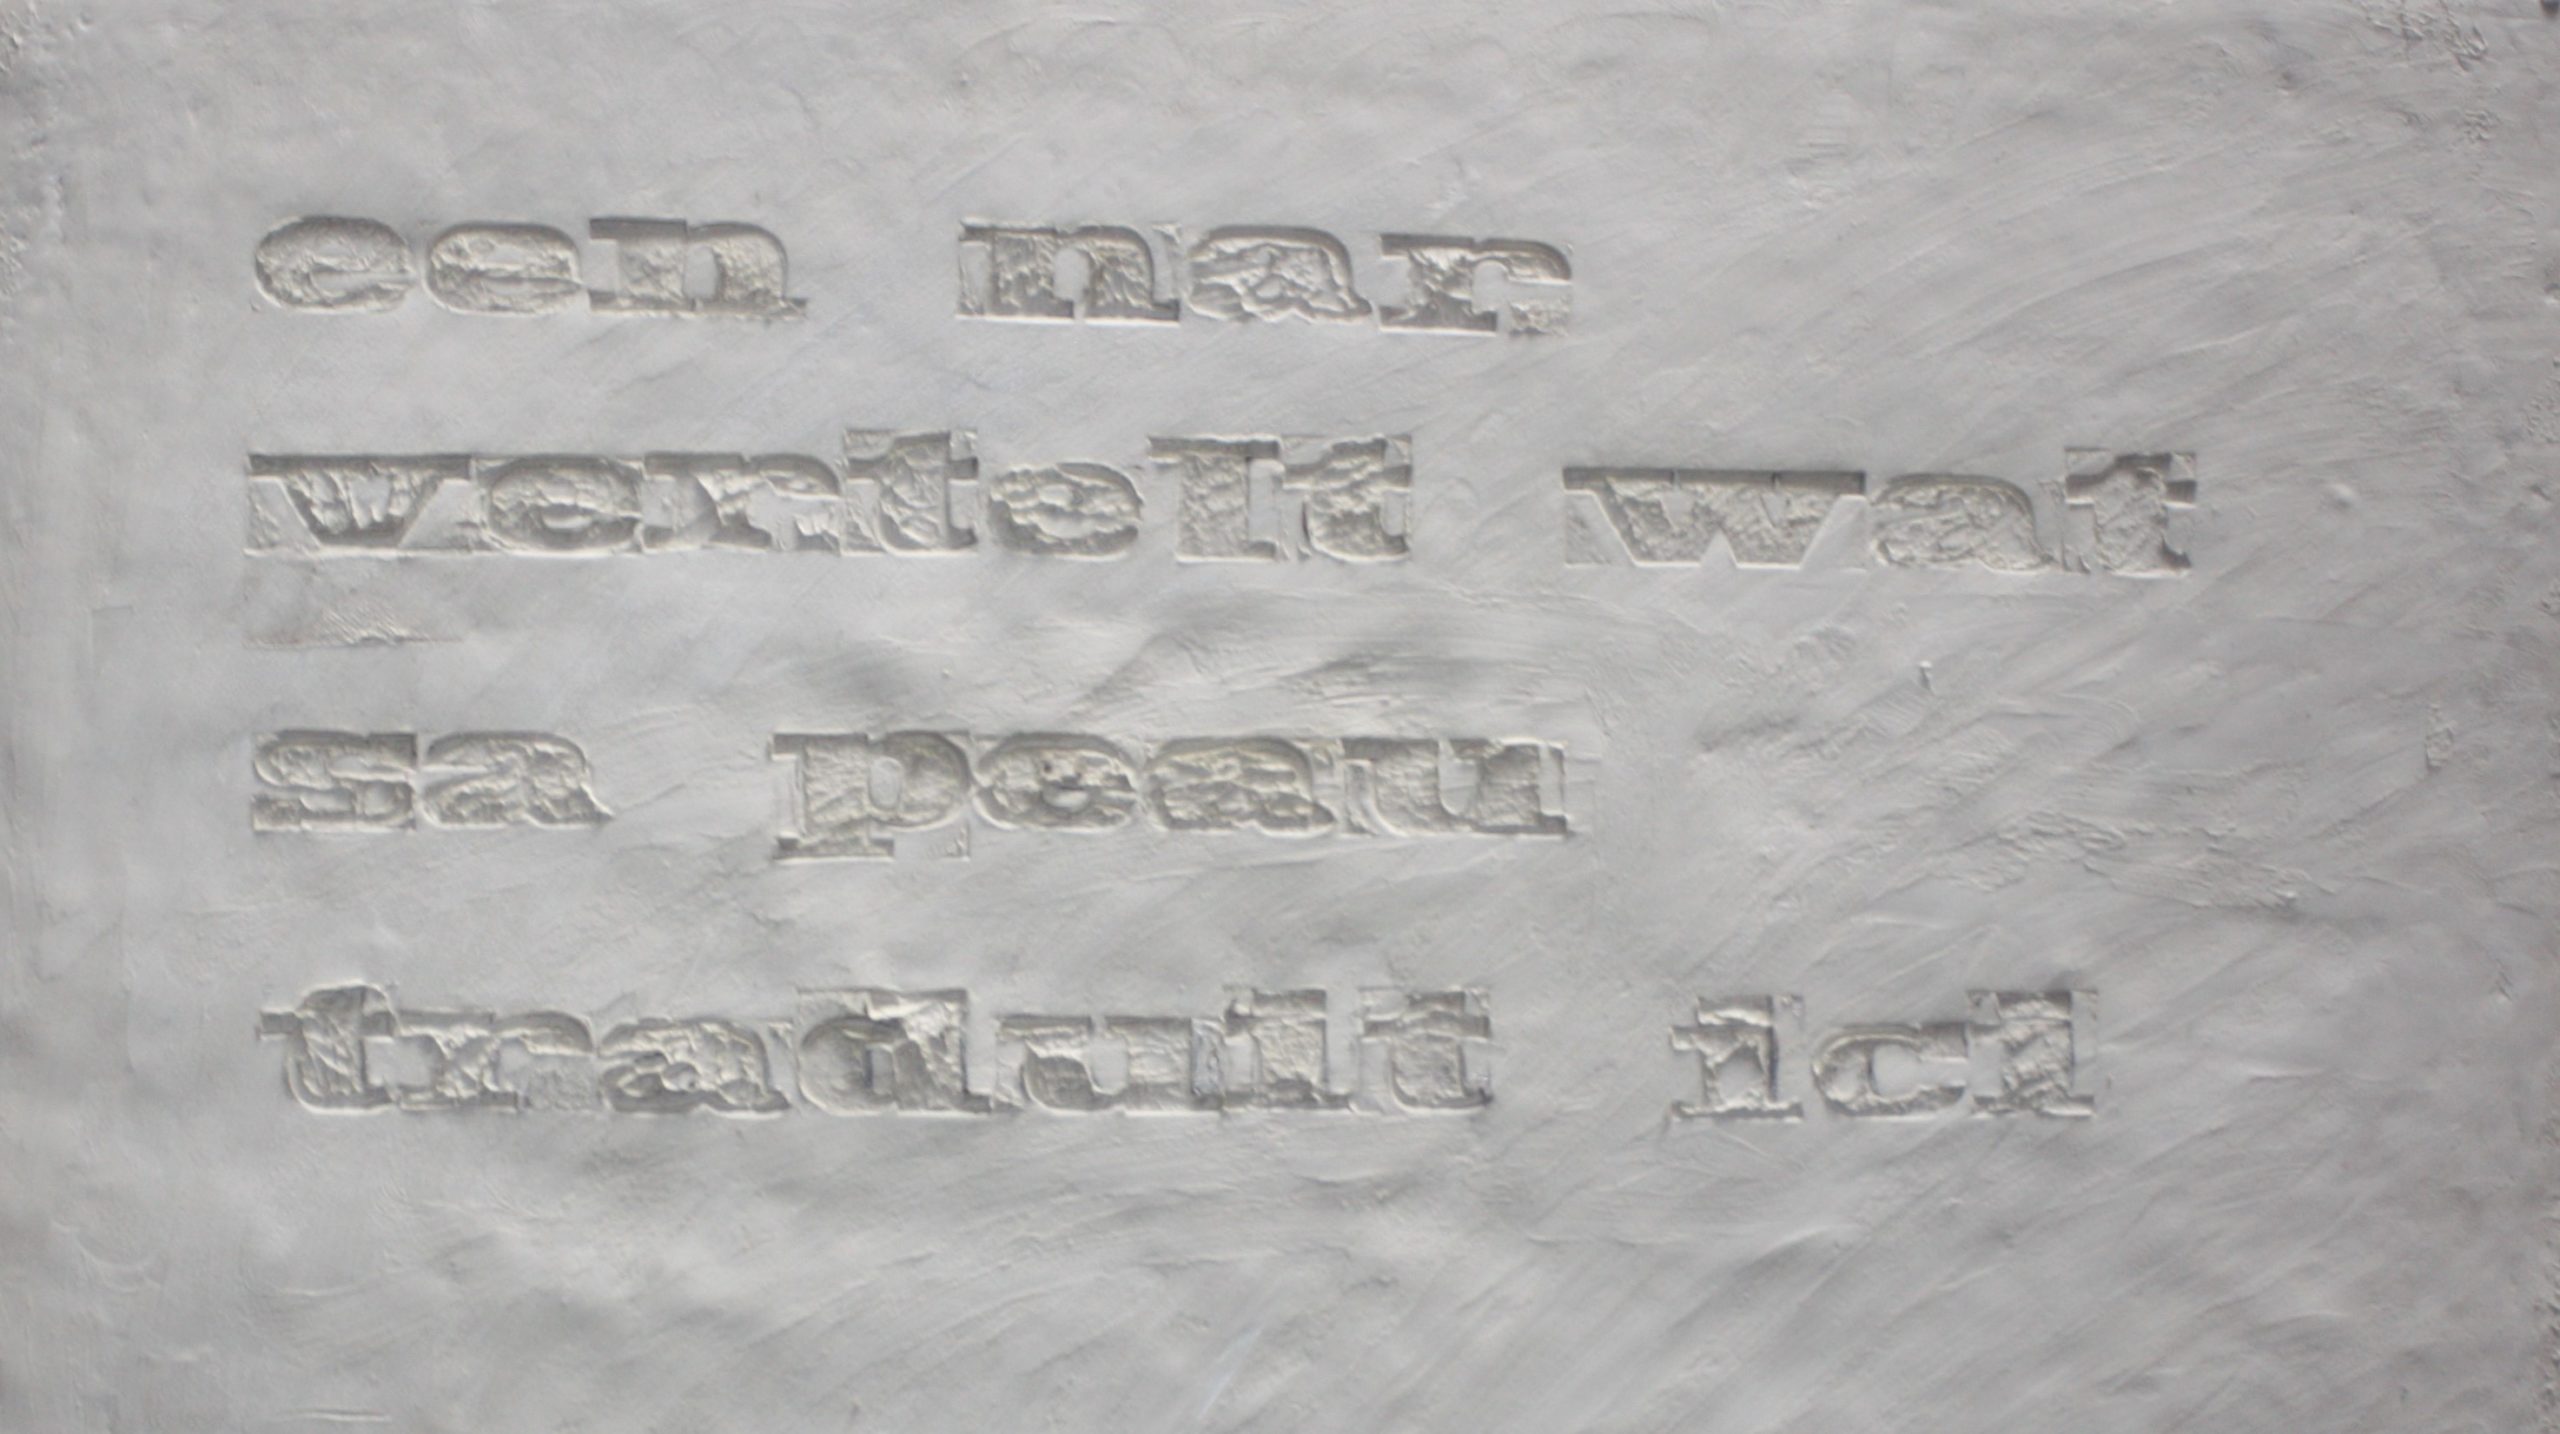 een nar
vertelt wat
sa peau
traduit ici